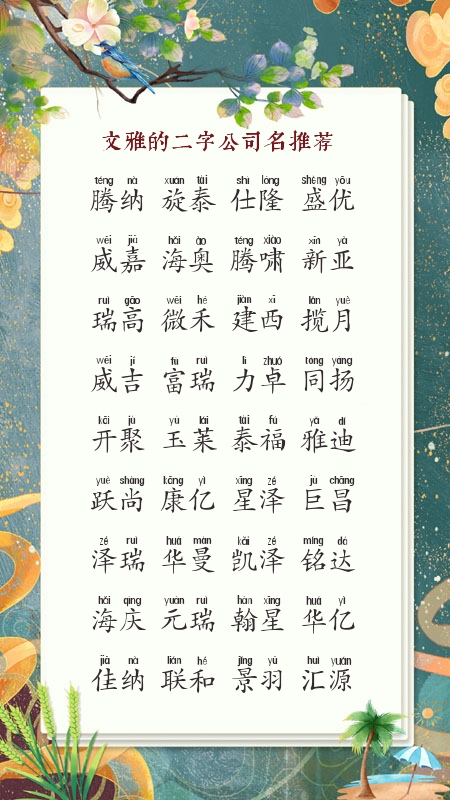 文雅的二字公司名推荐
téng nà xuán tài shì lóng shèng yōu
腾纳 旋泰 仕隆 盛优
wēi jiā hǎi ào téng xiào xīn yà
威嘉 海奥 腾啸 新亚
ruì gāo wēi hé jiàn xī lǎn yuè
瑞高 微禾 建西 揽月
wēi jí fù ruì lì zhuó tóng yáng
威吉 富瑞 力卓 同扬
kāi jù yù lái tài fú yǎ dí
开聚 玉莱 泰福 雅迪
yuè shàng kāng yì xīng zé jù chāng
跃尚 康亿 星泽 巨昌
zé ruì huá màn kǎi zé míng dá
泽瑞 华曼 凯泽 铭达
hǎi qìng yuán ruì hàn xīng huá yì
海庆 元瑞 翰星 华亿
jiā nà lián hé jǐng yǔ huì yuán
佳纳 联和 景羽 汇源